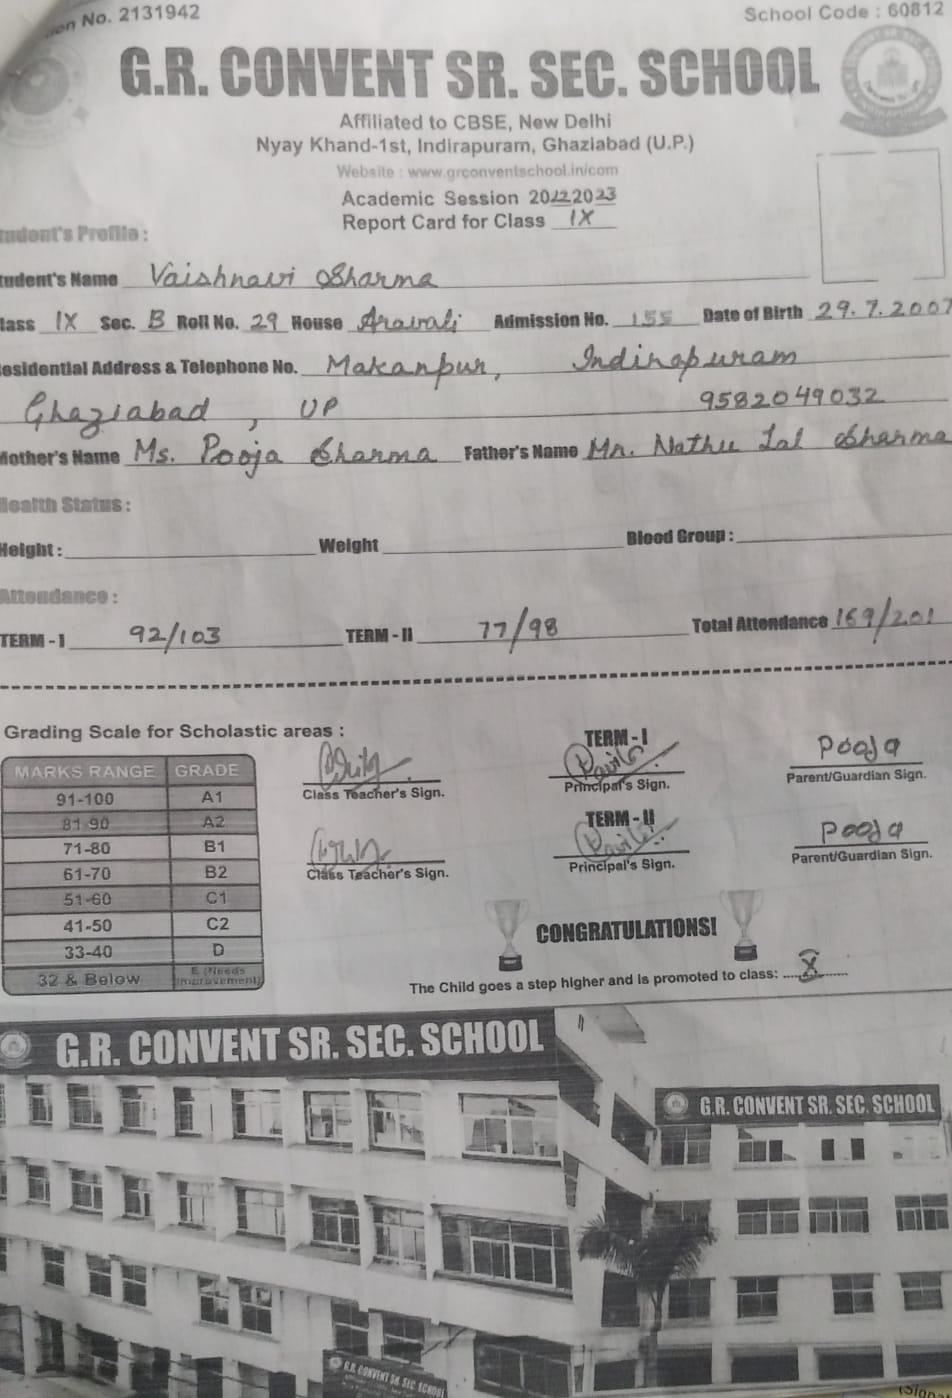 on No. 2131942
School Code : 60812
G.R. CONVENT SR. SEC. SCHOOL
Affiliated to CBSE, New Delhi
Nyay Khand-1st, Indirapuram, Ghaziabad (U.P.)
Website : www.grconventschool.in/com
Academic Session 2022 2023
Report Card for Class IX
tudent's Profile :
tudent's Name Vaishnavi Sharma
lass IX Sec. B Roll No. 29 House Aravali Admission No. 155 Date of Birth 29.7.2007
esidential Address & Telephone No. Makanpur, Indirapuram
Ghaziabad, UP 9582049032
Mother's Name Ms. Pooja Sharma Father's Name Mr. Nathu Lal Sharma
Health Status :
Height : Weight Blood Group :
Attendance :
TERM - I 92/103 TERM - II 77/98 Total Attendance 169/201
Grading Scale for Scholastic areas :
MARKS RANGE GRADE
91-100 A1
81-90 A2
71-80 B1
61-70 B2
51-60 C1
41-50 C2
33-40 D
32 & Below E (Needs Improvement)
TERM - I
Pooja
Class Teacher's Sign. Principal's Sign. Parent/Guardian Sign.
TERM - II
Pooja
Class Teacher's Sign. Principal's Sign. Parent/Guardian Sign.
CONGRATULATIONS!
The Child goes a step higher and is promoted to class: X
G.R. CONVENT SR. SEC. SCHOOL
G.R. CONVENT SR. SEC. SCHOOL
G.R. CONVENT SR. SEC. SCHOOL